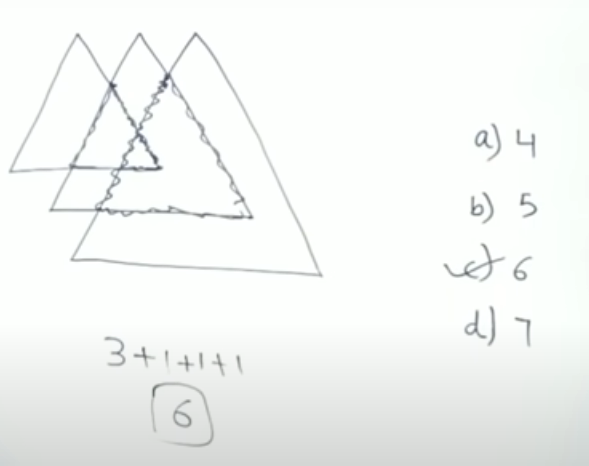 a) 4
b) 5
c) 6
d) 7
3+1+1+1
6